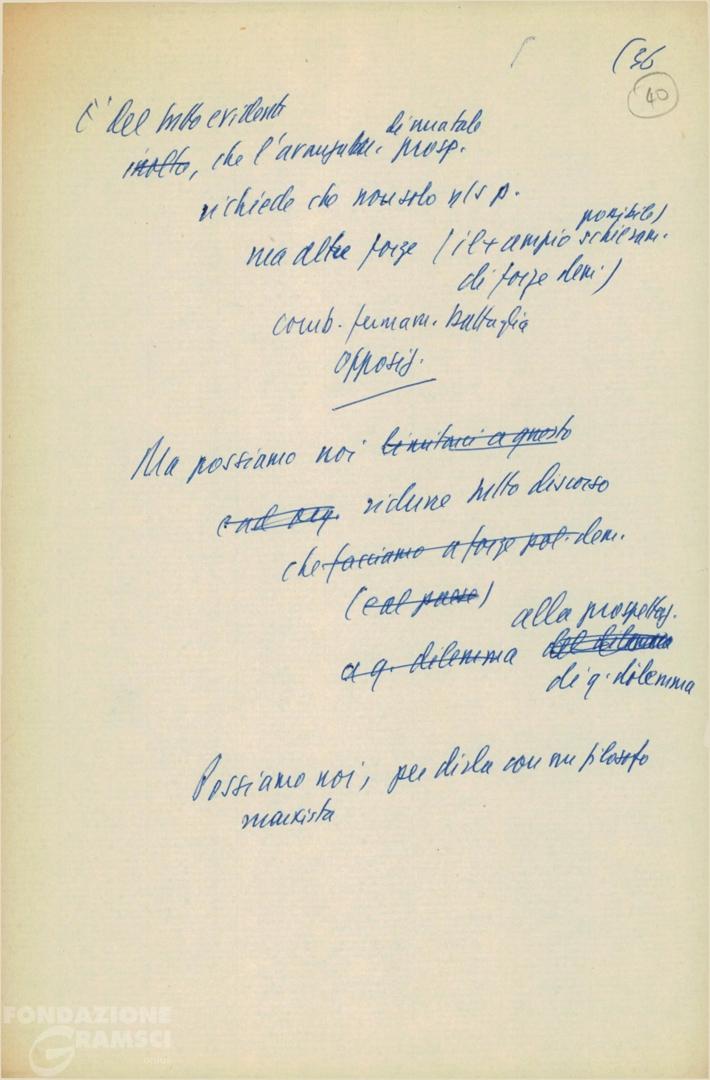 (36
40
È del tutto evidente
inoltre, che l'avanzata di una tale prosp.
richiede che non solo n/s p.
ma altre forze (il + ampio possibile schieram.
di forze dem.)
comb. fermam. battaglia
opposiz.
Ma possiamo noi limitarci a questo
e ad oq. ridurre tutto discorso
che facciamo a forze pol. dem.
(e al paese)
alla prospettiv.
a q. dilemma del dilemma
di q. dilemma
Possiamo noi, per dirla con un filosofo
marxista
FONDAZIONE
GRAMSCI
onlus